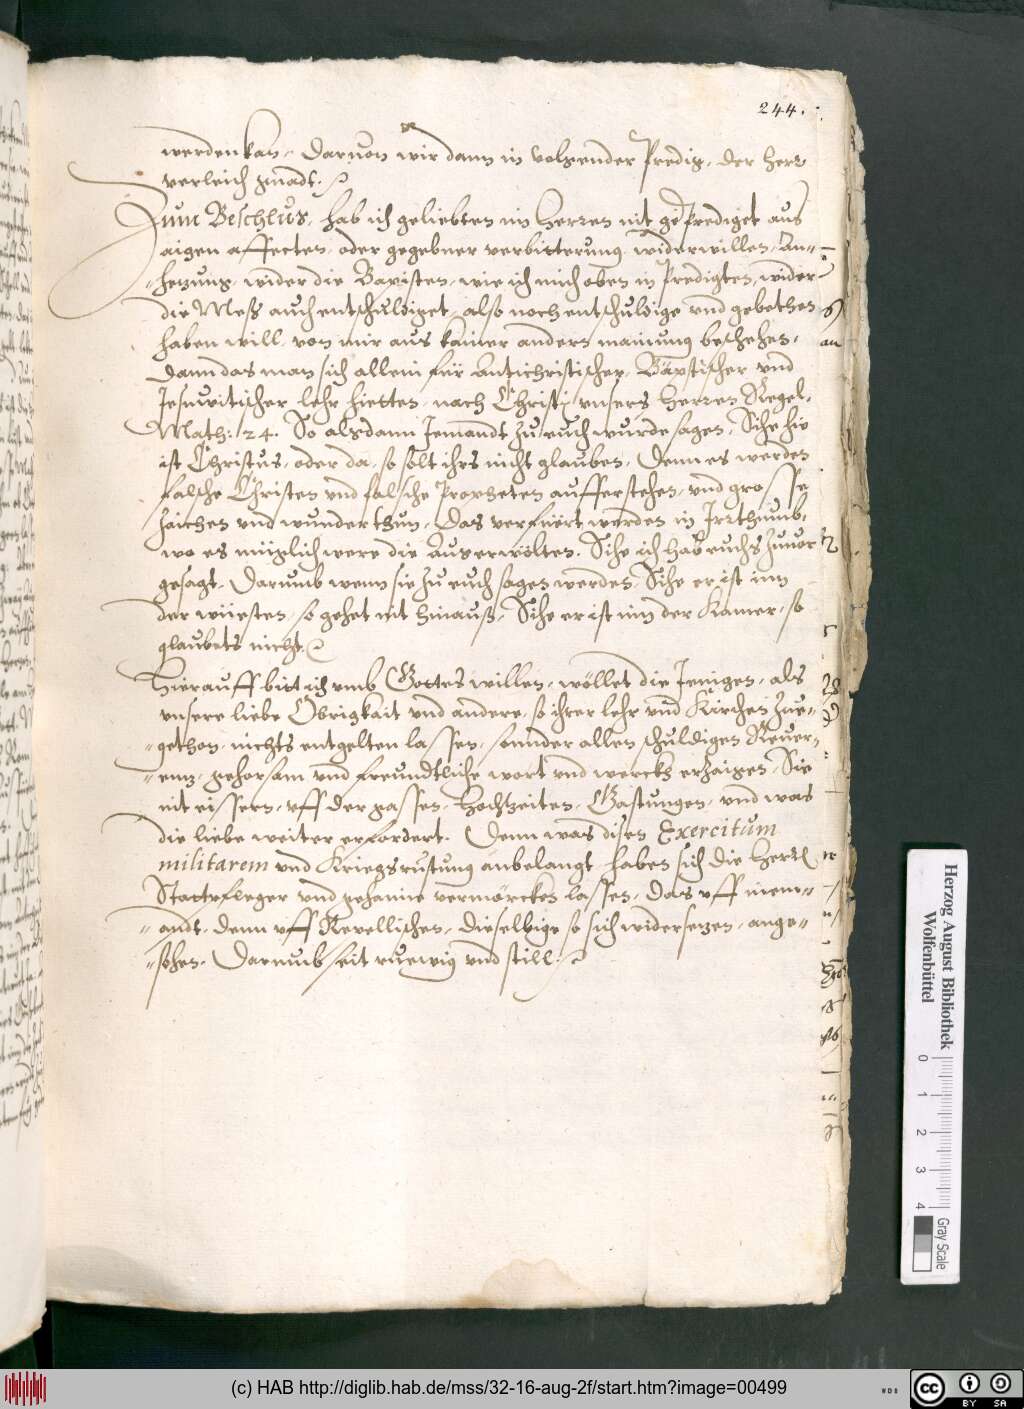 244.
werden kan, Daruon wir dann in volgender Predig, der Herr
verleich gnadt.
Zum Beschlus, hab ich geliebten im Herren nit geprediget aus
aigen affecten, oder gegebner verbitterung, widerwillen, An=
=hezung, wider die Bapisten, wie ich mich oben in Predigten, wider
die Meß auch entschuldiget, also noch entschuldige vnd gebethen
haben will, von mir aus kainer anders mainung beschehen,
Dann das man sich allein für Antichristischer, Bäpstischer vnd
Jesuwitischer lehr hietten, nach Christi vnsers Herren Regel,
Math: 24. So alsdann Jemandt zu euch wurde sagen, Sihe hie
ist Christus, oder da, so solt ihrs nicht glauben, Denn es werden
falsche Christen vnd falsche Propheten aufferstehen, vnd grosse
zaichen vnd wunder thun, Das verfüert werden in Irrthumb,
wo es müglich were die Auserwölten. Sihe ich hab euchs zuuor
gesagt. Darumb wenn sie zu euch sagen werden, Sihe er ist inn
der wüesten, so gehet nit hinauß, Sihe er ist inn der Kamer, so
glaubets nicht.
Hierauff bitt ich vmb Gottes willen, wöllet die Jenigen, als
vnsere liebe Obrigkait vnd andere, so ihrer lehr vnd Kirchen zue=
=gethon, nichts entgelten lassen, sonnder allen schuldigen Reuer=
=entz, gehorsam vnd freundtliche wort vnd werckh erzaigen, Sie
nit eissern, vff der gassen, Hochtzeiten, Gastungen, vnd was
die liebe weiter erfordert. Denn was disen Exercitum
militarem vnd Kriegsrüstung anbelangt, haben sich die Herrn
Stattpfleger vnd gehaime vermörcken lassen, Das vff niem=
=andt, denn vff Revellischen, dieselbige so sich widersetzen, ange=
=sehen. Darumb seit ruewig vnd still.
Herzog August Bibliothek
Wolfenbüttel
0 1 2 3 4
Gray Scale
(c) HAB http://diglib.hab.de/mss/32-16-aug-2f/start.htm?image=00499
WDB
cc BY SA